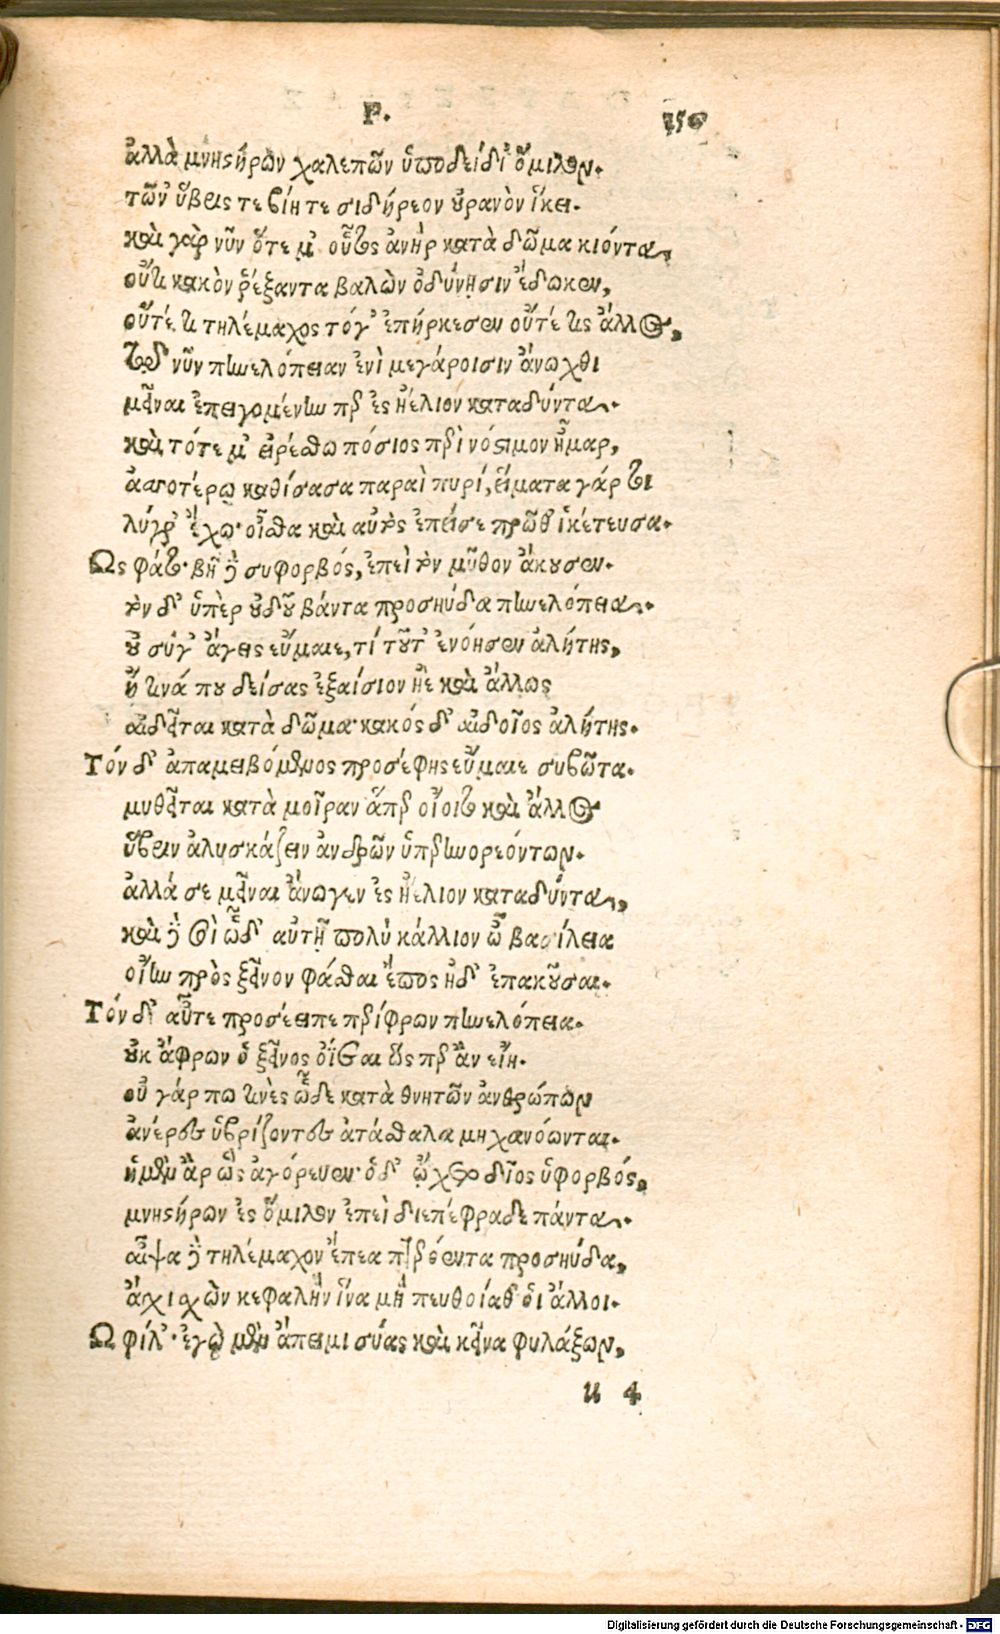 Ρ. 156
ἀλλὰ μνηστήρων χαλεπῶν ὑποδείδι᾽ ὅμιλον.
τῶν ὕβρις τε βίη τε σιδήρεον οὐρανὸν ἵκει.
καὶ γὰρ νῦν ὅτε μ᾽ οὗτος ἀνὴρ κατὰ δῶμα κιόντα,
οὔτι κακὸν ῥέξαντα βαλὼν ὀδύνῃσιν ἔδωκεν,
οὔτέ τι τηλέμαχος τόγ᾽ ἐπήρκεσεν οὔτέ τις ἄλλος,
τῷ νῦν πηνελόπειαν ἐνὶ μεγάροισιν ἄνωχθι
μεῖναι ἐπειγομένην περ ἐς ἠέλιον καταδύντα.
καὶ τότε μ᾽ εἰρέσθω πόσιος περὶ νόστιμον ἦμαρ,
ἀσσοτέρω καθίσασα παραὶ πυρί, εἵματα γάρ τοι
λύγρ᾽ ἔχω· οἶσθα καὶ αὐτὸς ἐπεί σε πρῶθ᾽ ἱκέτευσα.
Ως φάτο· βῆ δὲ συφορβός, ἐπεὶ τὸν μῦθον ἄκουσεν.
τὸν δ᾽ ὑπὲρ οὐδοῦ βάντα προσηύδα πηνελόπεια.
οὐ σύγ᾽ ἄγεις εὔμαιε, τί τοῦτ᾽ ἐνόησεν ἀλήτης,
ἤ τινά που δείσας ἐξαίσιον ἠὲ καὶ ἄλλως
αἰδεῖται κατὰ δῶμα· κακός δ᾽ αἰδοῖος ἀλήτης.
Τόν δ᾽ ἀπαμειβόμενος προσέφης εὔμαιε συβῶτα.
μυθεῖται κατὰ μοῖραν ἅπερ οἴοιτο καὶ ἄλλος
ὕβριν ἀλυσκάζειν ἀνδρῶν ὑπερηνορεόντων.
ἀλλά σε μεῖναι ἄνωγεν ἐς ἠέλιον καταδύντα,
καὶ δὲ σοὶ ὧδ᾽ αὐτῇ πολὺ κάλλιον ὦ βασίλεια
οἴην πρὸς ξεῖνον φάσθαι ἔπος ἠδ᾽ ἐπακοῦσαι.
Τόν δ᾽ αὖτε προσέειπε περίφρων πηνελόπεια.
οὐκ ἄφρων ὁ ξεῖνος ὀΐεται ὥς περ ἂν εἴη.
οὐ γάρ πω τινὲς ὧδε κατὰ θνητῶν ἀνθρώπων
ἀνέρες ὑβρίζοντες ἀτάσθαλα μηχανόωνται.
ἡ μὲν ἂρ ὣς ἀγόρευεν· ὁ δ᾽ ᾤχετο δῖος ὑφορβός,
μνηστήρων ἐς ὅμιλον ἐπεὶ διεπέφραδε πάντα.
αἶψα δὲ τηλέμαχον ἔπεα πτερόεντα προσηύδα,
ἄγχι σχὼν κεφαλὴν ἵνα μὴ πευθοίαθ᾽ οἱ ἄλλοι.
Ω φίλ᾽· ἐγὼ μὲν ἄπειμι σύας καὶ κεῖνα φυλάξων,
u 4
Digitalisierung gefördert durch die Deutsche Forschungsgemeinschaft - DFG